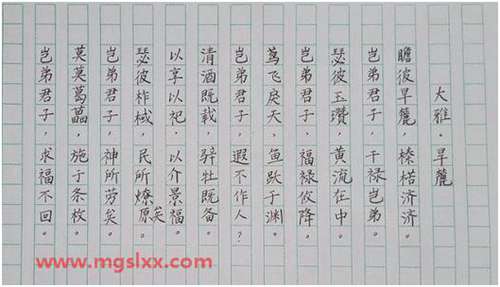 大雅·旱麓
瞻彼旱麓，榛楛济济。
岂弟君子，干禄岂弟。
瑟彼玉瓒，黄流在中。
岂弟君子，福禄攸降。
鸢飞戾天，鱼跃于渊。
岂弟君子，遐不作人？
清酒既载，骍牡既备。
以享以祀，以介景福。
瑟彼柞棫，民所燎原矣。
岂弟君子，神所劳矣。
莫莫葛藟，施于条枚。
岂弟君子，求福不回。
www.mgslxx.com